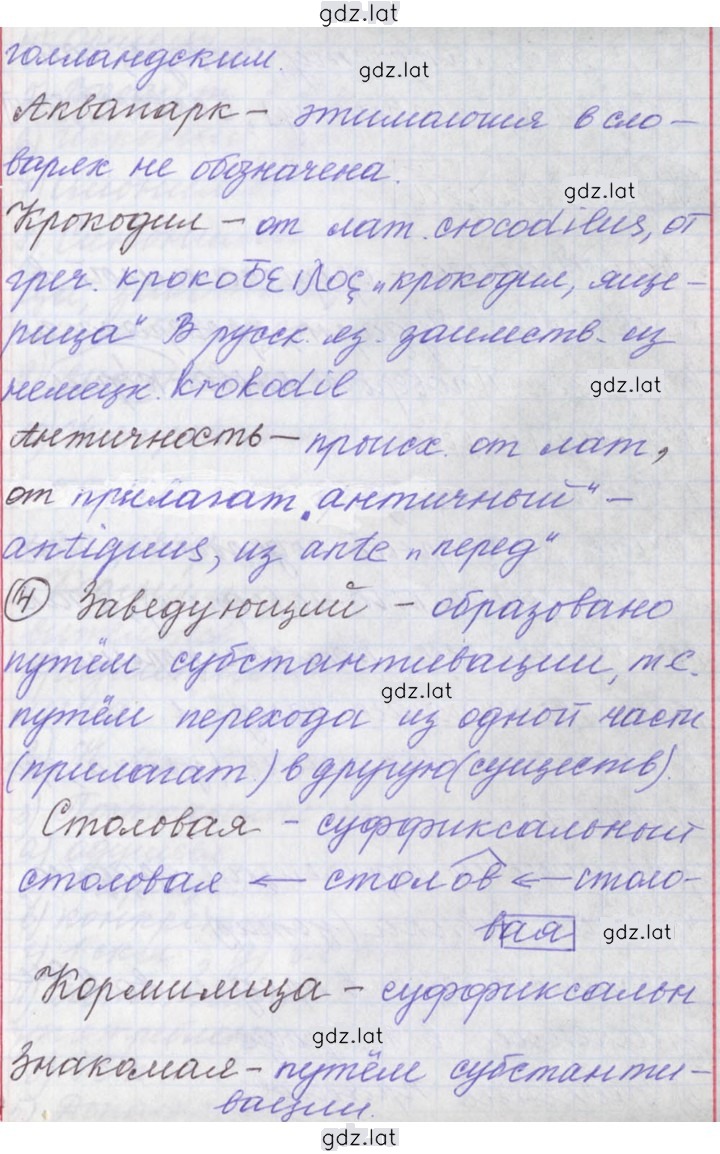 gdz.lat
голландским.
gdz.lat
Аквапарк – этималогия в сло-
варях не обозначена.
gdz.lat
Крокодил – от лат. crocodilus, от
греч. κροκοδειλος „крокодил, яще-
рица“ В русск. яз. заимств. из
немецк. krokodil
gdz.lat
Античность – происх. от лат,
от прилагат „античный“ –
antiquus, из ante „перед“
4 Заведующий – образовано
путём субстантивации, т.е.
gdz.lat
путём перехода из одной части
(прилагат.) в другую (существ).
Столовая – суффиксальный
столовая ← столов ← столо-
вая gdz.lat
Кормилица – суффиксальн
gdz.lat
Знакомая – путём субстанти-
вации.
gdz.lat